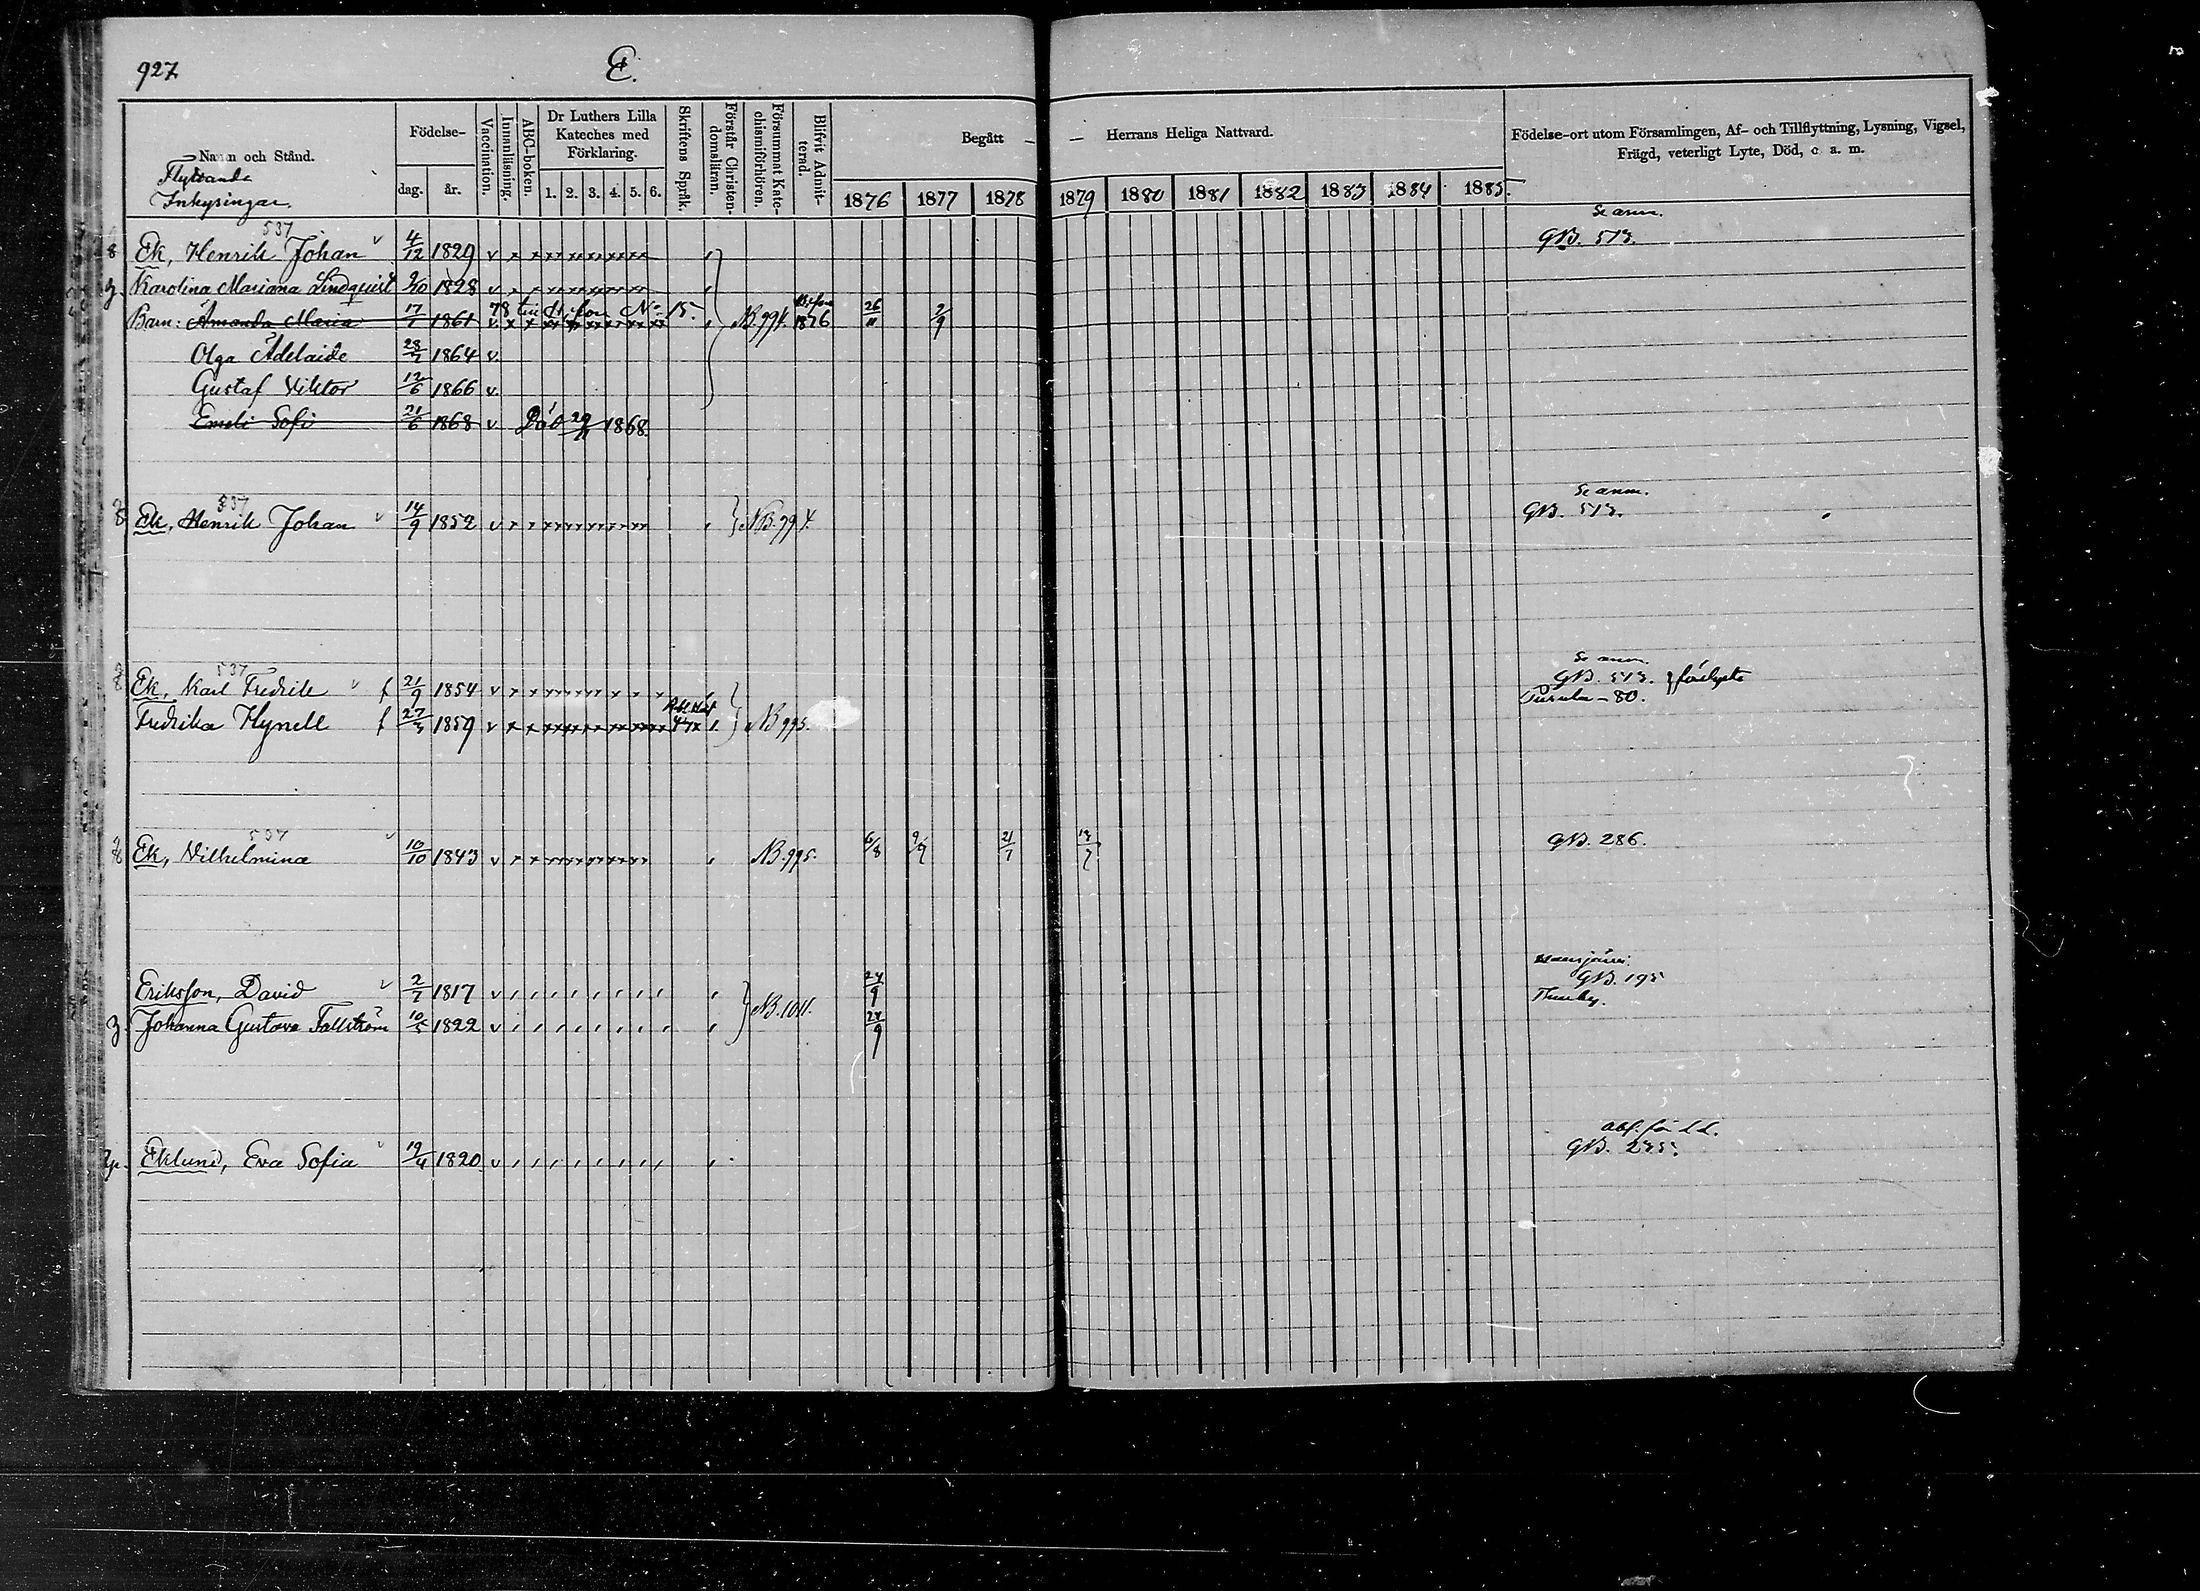 927
E.
Namn och Stånd.
Flyttande
Inhysingar.
Födelse-
dag. år.
Vaccination.
Innanläsning.
ABC-boken.
Dr Luthers Lilla
Kateches med
Förklaring.
1. 2. 3. 4. 5. 6.
Skriftens Språk.
Förstår Christen-
domsläran.
Försummat Kate-
chismiförhören.
Blifvit Admit-
terad.
Begått — — Herrans Heliga Nattvard.
1876 1877 1878 1879 1880 1881 1882 1883 1884 1885.
Födelse-ort utom Församlingen, Af- och Tillflyttning, Lysning, Vigsel,
Frägd, veterligt Lyte, Död, c. a. m.
537
Se anm.
Ek, Henrik Johan 4/12 1829 v GB. 513.
Karolina Mariana Lindquist 1828 v
78 till No 15.
Barn: Amanda Maria 17/7 1861 v NB. 994. 1876 26/11 2/9
Olga Adelaide 28/7 1864 v.
Gustaf Viktor 12/6 1866 v.
Emeli Sofi 21/6 1868 v Död 29/11 1868.
537
Se anm.
Ek, Henrik Johan 14/9 1852 v NB. 994. GB. 513.
537
Se anm.
Ek, Karl Fredrik 21/9 1854 v GB. 513.
80.
Fredrika Hynell 27/3 1859 v NB 995.
537
Ek, Vilhelmina 10/10 1843 v NB. 995. 6/8 9/7 21/7 13/7 GB. 286.
Eriksson, David 2/7 1817 v NB. 1011. 24/9 GB. 195
Thusby.
Johanna Gustava Fallström 10/5 1822 v 24/9
Eklund, Eva Sofia 19/4 1820 v GB. 235.